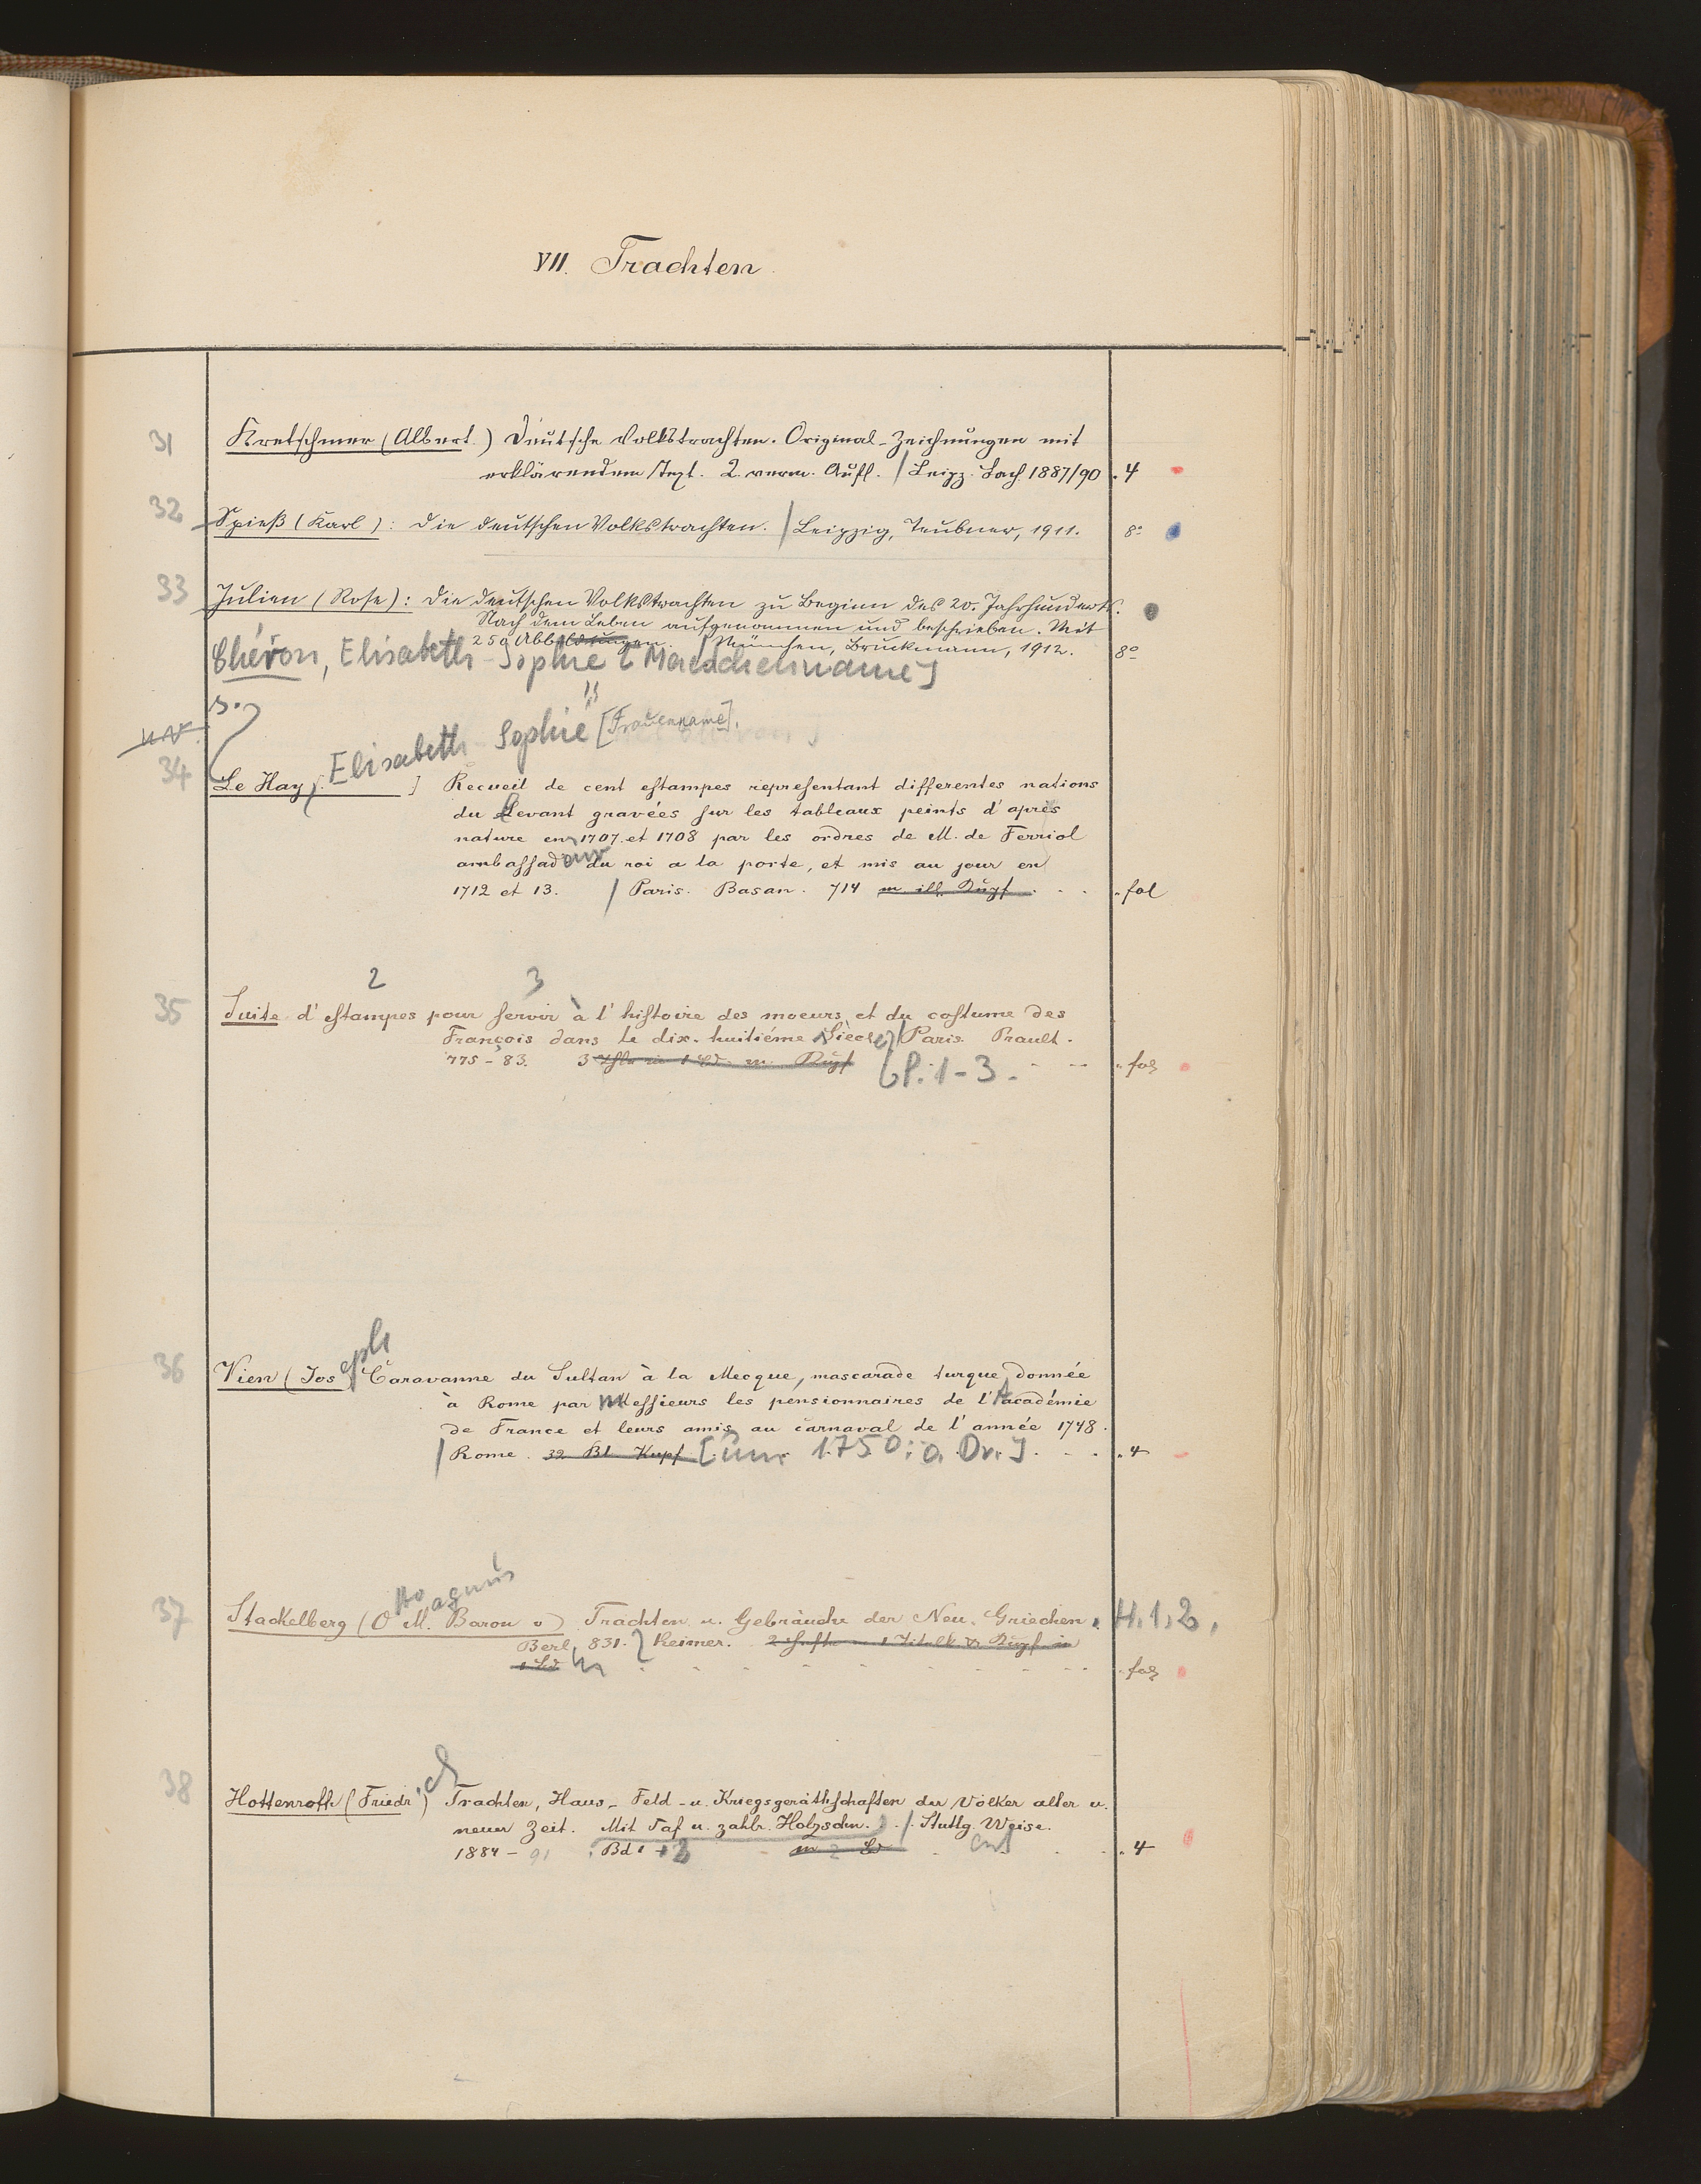 VII. Trachten
31 Kretschmer (Albert.) Deutsche Volkstrachten. Original-Zeichnungen mit
erklärendem Text. 2. verm. Aufl. / Leipz. Bach 1887/90 . 4
32 Spieß (Karl): Die deutschen Volkstrachten. / Leipzig, Teubner, 1911. 8°
33 Julien (Rose): Die deutschen Volkstrachten zu Beginn des 20. Jahrhunderts.
Nach dem Leben aufgenommen und beschrieben. Mit
250 Abbildungen. / München, Bruckmann, 1912. 8°
Chéron, Elisabeth-Sophie [Maedchenname]
s.
Elisabeth-Sophie [Frauenname].
34 Le Hay [ ] Recueil de cent estampes representant differentes nations
du Levant gravées sur les tableaux peints d'après
nature en 1707 et 1708 par les ordres de M. de Ferriol
ambassadeur du roi a la porte, et mis au jour en
1712 et 13. / Paris. Basan. 714 m. ill. Kupf. . . . fol
2 3
35 Suite d'estampes pour servir à l'histoire des moeurs et du costume des
François dans le dix-huitiéme Siècle / Paris. Prault.
775-83. 3 Thle in 1 Bd. m. Kupf [P. 1-3. . fol
36 Vien (Joseph) Caravanne du Sultan à la Mecque, mascarade turque donnée
à Rome par Messieurs les pensionnaires de l'Académie
de France et leurs amis au carnaval de l'année 1748.
/ Rome. 32 Bl. Kupf. [um 1750: o. Dr.] . . . 4
37 Stackelberg (Otto Magnus Baron v) Trachten u. Gebräuche der Neu-Griechen. H. 1, 2,
Berlin, 831. Reimer. 2 Hefte m. 1 Titelbl. u. Kupf in
1 Bd . fol
38 Hottenroth (Friedrich) Trachten, Haus-, Feld- u. Kriegsgeräthschaften der Völker alter u.
neuer Zeit. Mit Taf u. zahlr. Holzschn. / Stuttg. Weise.
1884-91 Bd 1 + 2 in 2 Bd . 4